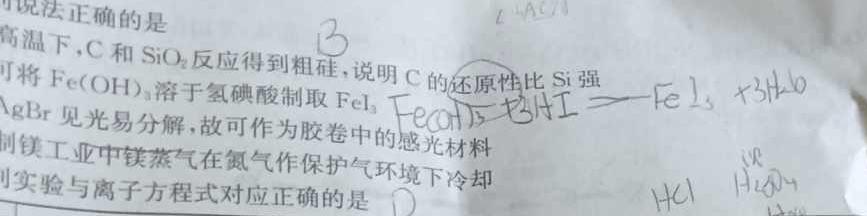 说法正确的是
B
高温下,C 和 SiO₂ 反应得到粗硅,说明 C 的还原性比 Si 强
可将 Fe(OH)₃ 溶于氢碘酸制取 FeI₃
Fe(OH)₃+3HI=FeI₃+3H₂O
AgBr 见光易分解,故可作为胶卷中的感光材料
制镁工业中镁蒸气在氮气作保护气环境下冷却
实验与离子方程式对应正确的是 D
HCl